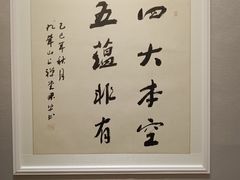 四大本空
五蕴非有
乙巳年秋月
九华山